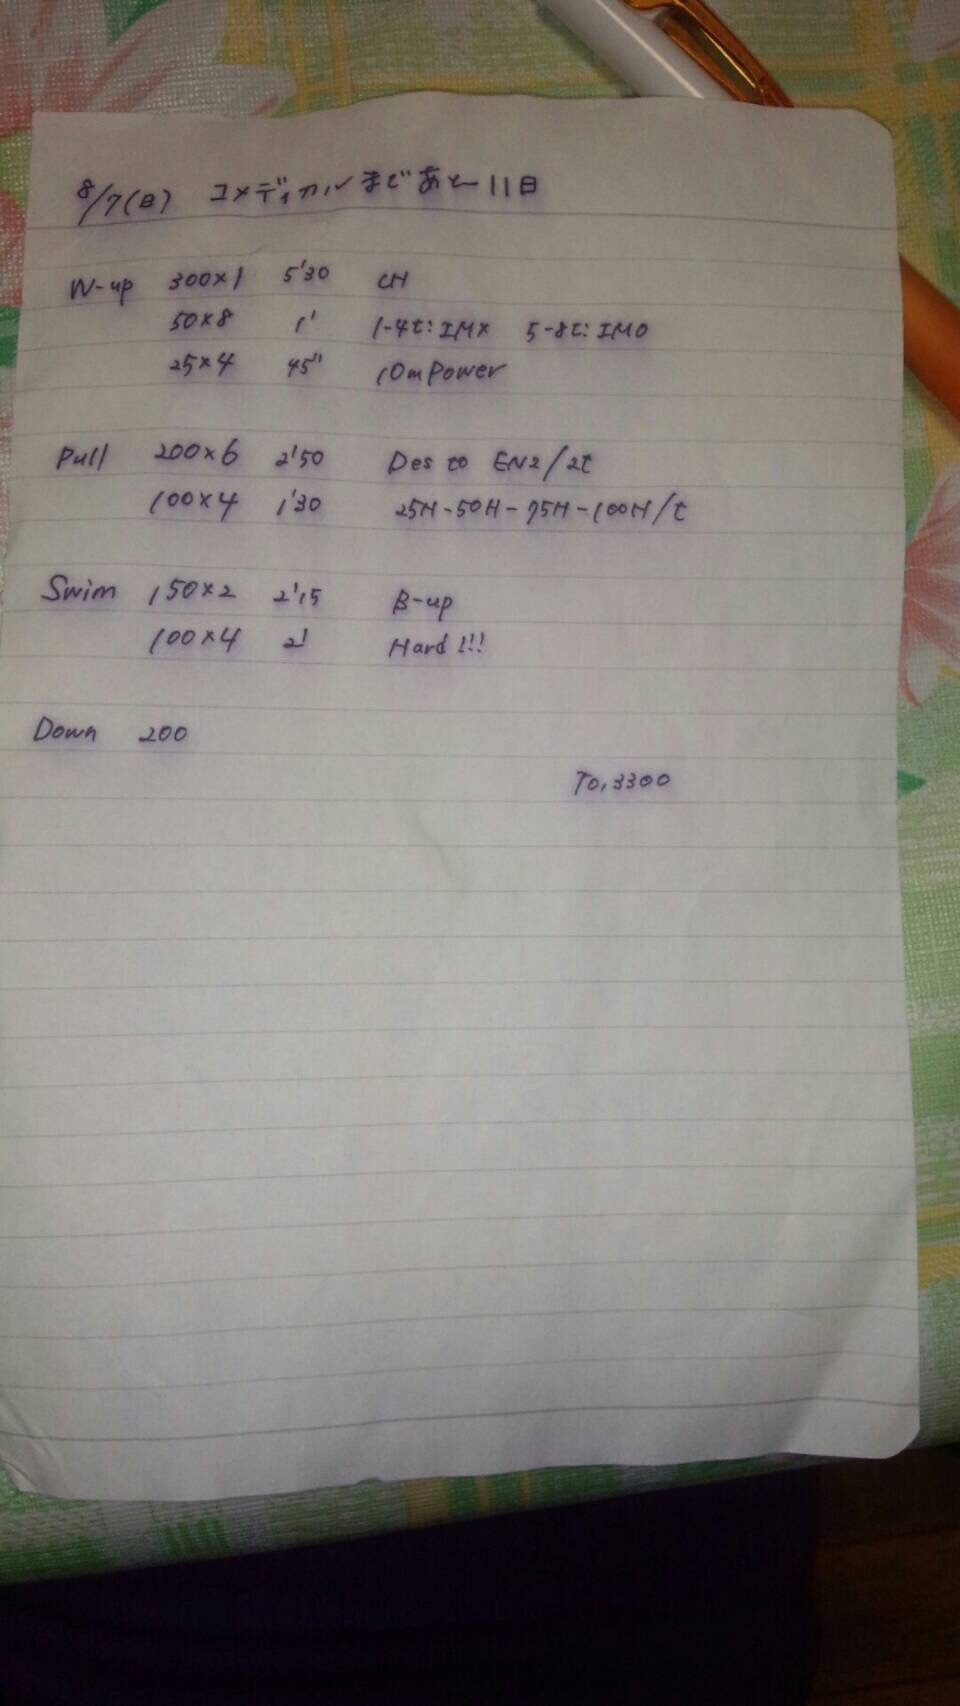 8/7(日) コメディカルまであと11日
W-up 300×1 5'30 CH
50×8 1' 1-4t:IMX 5-8t:IMO
25×4 45" 10mPower
Pull 200×6 2'50 Des to EN2/2t
100×4 1'30 25H-50H-75H-100H/t
Swim 150×2 2'15 B-up
100×4 2' Hard!!!
Down 200
To,3300